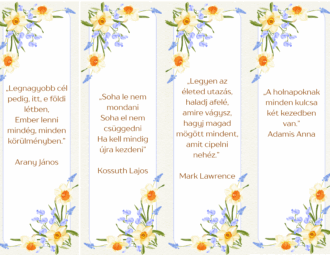 „Legnagyobb cél
pedig, itt, e földi
létben,
Ember lenni
mindég, minden
körülményben."
Arany János
„Soha le nem
mondani
Soha el nem
csüggedni
Ha kell mindig
újra kezdeni"
Kossuth Lajos
„Legyen az
életed utazás,
haladj afelé,
amire vágysz,
hagyj magad
mögött mindent,
amit cipelni
nehéz."
Mark Lawrence
„A holnapoknak
minden kulcsa
két kezedben
van."
Adamis Anna